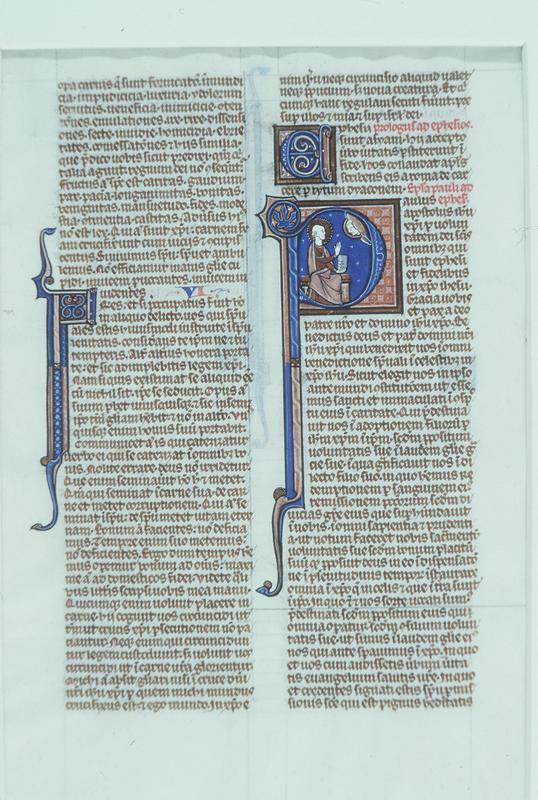 opa carnis q̄ sunt fornicatō inmundi
cia inpudicicia luxuria ydolorum
seruitus ueneficia inimicicie conten
tiōes emulationes ire rixe dissensi
ones secte inuidie homicidia ebrie
tates comessatōnes ⁊ hiis similia
que p̄dico uobis sicut p̄dixi
talia agunt regnum dei nō
fructus aūt sp̄s est caritas gaudium
pax pacia longanimitas bonitas
benignitas mansuetudo fides modes
tia continentia castitas aduersus hui
nō est lex Qui aūt sunt xp̄i carnem suā
crucifixerunt cum uiciis ⁊ concupis
centiis Si uiuimus sp̄u sp̄u ⁊ ambu
lemus Nō efficiamur inanis glīe cu
pidi inuicem prouocantes inuicem
inuidentes VI
Fratres et si preoccupatus fuerit hō
in aliquo delicto uos qui sp̄ua
les estis huiusmodi instruite ī sp̄u
lenitatis considerans te ip̄m ne ⁊ tu
tempteris Alter alterius honera porta
te et sic adimplebitis legem xp̄i
Nam si quis existimat se aliquid eē
cū nichil sit ip̄e se seducit Opus aūt
suum probet unusquisque ⁊ sic in semet
ip̄o tm̄ gliam habebit ⁊ nō in alto Un
quisque enim honus suū portabit
Communicet aūt is qui catezizatur
uerbo ei qui se catezizat in omnibus bo
nis Nolite errare deus nō irridetur
Que enim seminauerit hō hec ⁊ metet
Qm̄ qui seminat in carne sua de car
ne et metet corruptionem Qui aūt se
minat in sp̄u de sp̄u metet uitam eter
nam Bonum aūt facientes nō deficia
mus Tempore enim suo metemus
nō deficientes Ergo dum tempus habe
mus operemur bonum ad om̄s maxi
me aūt ad domesticos fidei Videte qua
libus litt̄is scripsi uobis mea manu
Quicumque enim uolunt placere in
carne hii cogunt uos circumcidi tm̄
ut crucis xp̄i persecutionem nō pa
ciantur Neque enim qui circumcidun
tur legem custodiunt sed uolunt uos
circumcidi ut in carne ur̄a glorientur
Michi aūt absit gliari nisi in cruce dn̄i
nr̄i ih̄u xp̄i per quem michi mundus
crucifixus est ⁊ ego mundo In xp̄o e
nim ih̄u neque circumcisio aliquid ualet
neque prepucium sed noua creatura Et qui
cumque hanc regulam secuti fuerint pax
super illos ⁊ mia ⁊ super isrl dei
Ephesii prologus ad ephesios
sunt asiani hii accepto
uerbo ueritatis perstiterunt in
fide hos collaudat apl̄s
scribens eis a roma de car
cere per tyticum dyaconem Epl̄a pauli ad
Paulus ephes̄
apostolus ih̄u
xp̄i per uolun
tatem dei sc̄is
omnibus qui
sunt ephesi
et fidelibus
in xp̄o ih̄esu
Gracia uobis
et pax a deo
patre nr̄o et domino ih̄u xp̄o Be
nedictus deus et pater dn̄i nr̄i
ih̄u xp̄i qui benedixit nos in omni
benedictione sp̄uali in celestibus in
xp̄o ih̄u Sicut elegit nos in ip̄so
ante mundi constitutionem ut esse
mus sancti et immaculati in conspec
tu eius in caritate Qui predesti
nauit nos in adoptionem filiorum per
ih̄m xp̄m in ip̄m secundum propositum
uoluntatis sue in laudem glīe gra
cie sue in qua gratificauit nos in di
lecto filio suo in quo habemus re
demptionem per sanguinem eius
remissionem peccatorum secundum di
uicias grē eius que superhabundauit
in nobis in omni sapientia ⁊ prudenti
a ut notum faceret nobis sacramentū
uoluntatis sue secundum bonum placitū
suū quod proposuit deus in eo in dispensatō
ne plenitudinis temporum instaurare
omnia in xp̄o que in celis ⁊ que in terra sunt
in ip̄so In quo ⁊ nos sorte uocati sumus
predestinati secundum propositum eius qui
omnia operatur secundum consilium uolun
tatis sue ut simus in laudem glīe eius
nos qui ante sperauimus in xp̄o In quo
et uos cum audissetis uerbum ueritatis
euangelium salutis ur̄e In quo
et credentes signati estis sp̄u promis
sionis sc̄o qui est pignus hereditatis